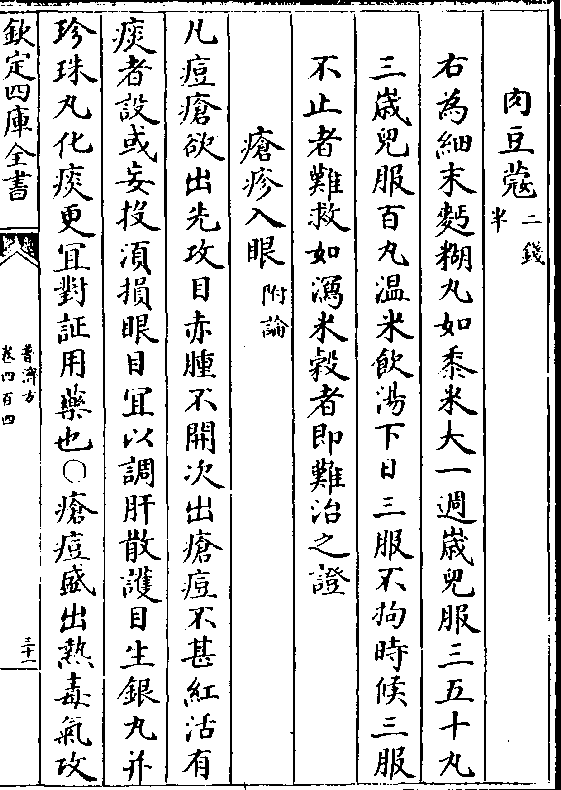 肉豆蔻二錢半
右為細末麪糊丸如黍米大一週歲兒服三五十丸
三歲兒服百丸温米飲湯下日三服不拘時候三服
不止者難救如瀉米穀者即難治之證
瘡疹入眼附論
凡痘瘡欲出先攻目赤腫不開次出瘡痘不甚紅活有
痰者設或妄投湏損眼目宜以調肝散護目生銀丸并
珍珠丸化痰更宜對証用藥也○瘡痘盛出熱毒氣攻
欽定四庫全書
普濟方
卷四百四
三十一